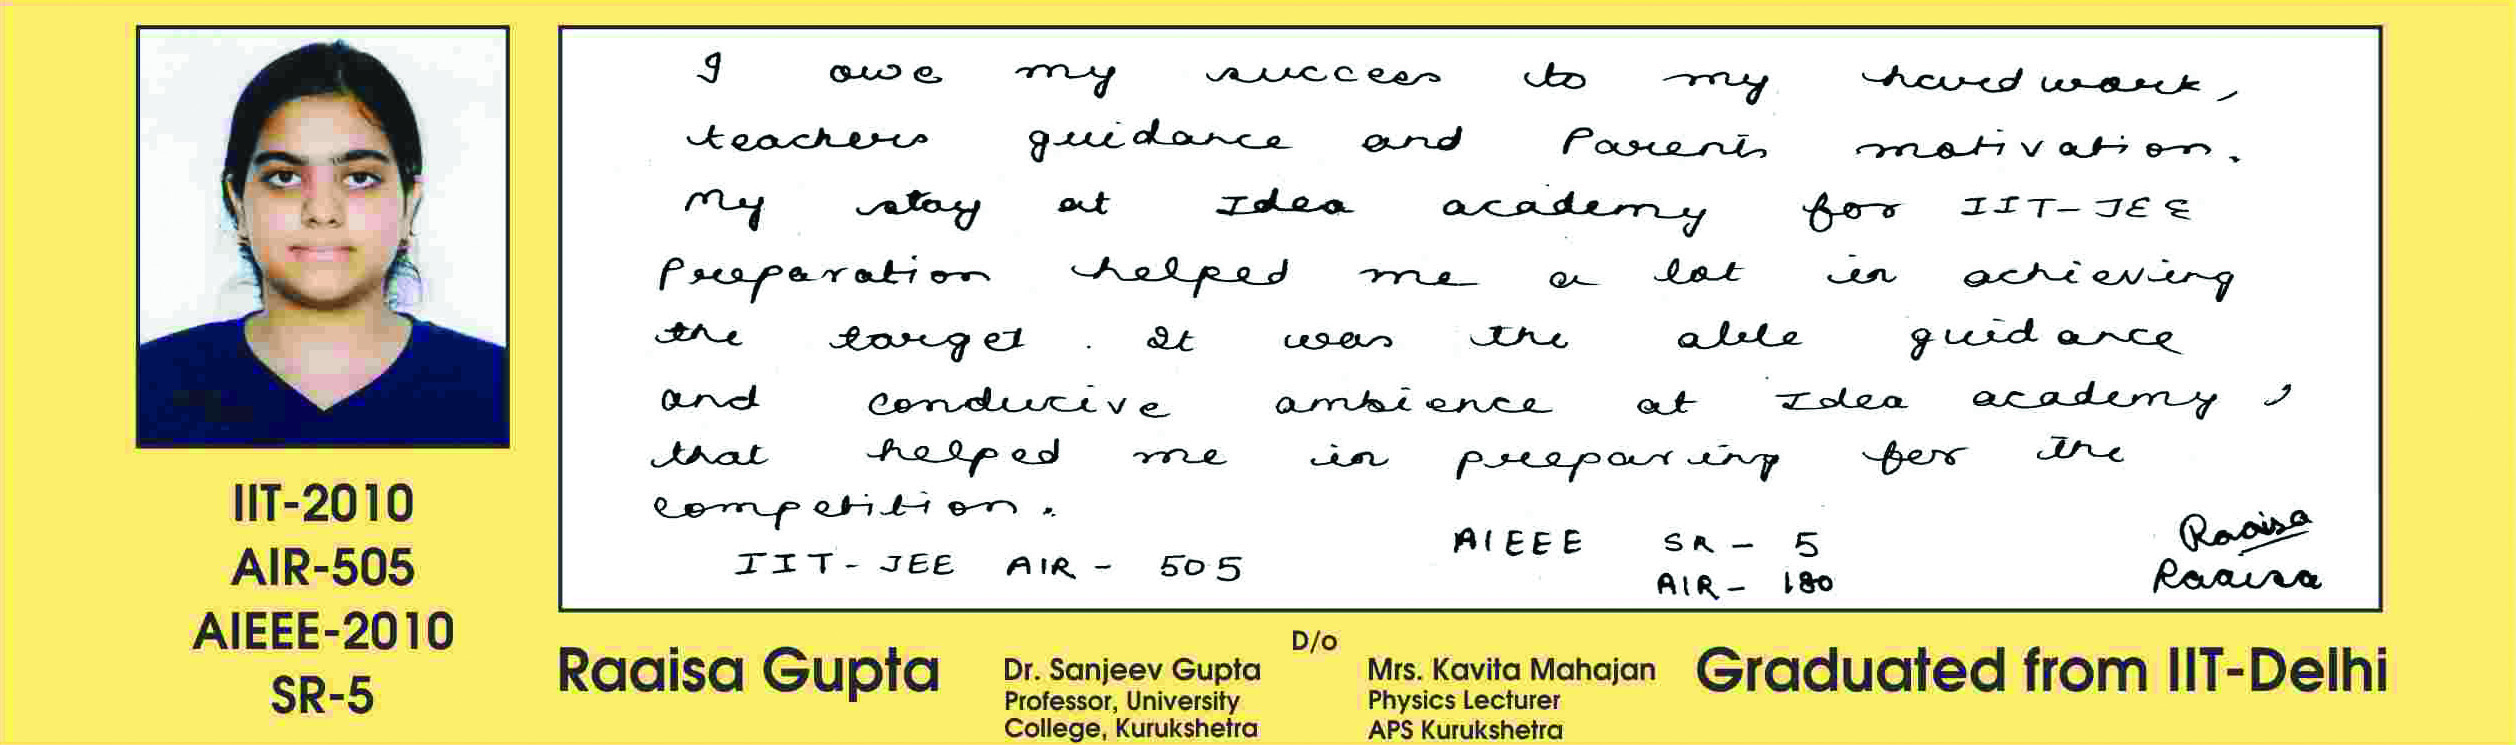 I owe my success to my hardwork,
teachers guidance and Parents motivation.
My stay at Idea academy for IIT-JEE
Preparation helped me a lot in achieving
the target. It was the able guidance
and conducive ambience at Idea academy,
that helped me in preparing for the
competition.
IIT-JEE AIR - 505
AIEEE SR - 5
AIR - 180
Raaisa
Raaisa
IIT-2010
AIR-505
AIEEE-2010
SR-5
Raaisa Gupta
D/o
Dr. Sanjeev Gupta
Professor, University
College, Kurukshetra
Mrs. Kavita Mahajan
Physics Lecturer
APS Kurukshetra
Graduated from IIT-Delhi